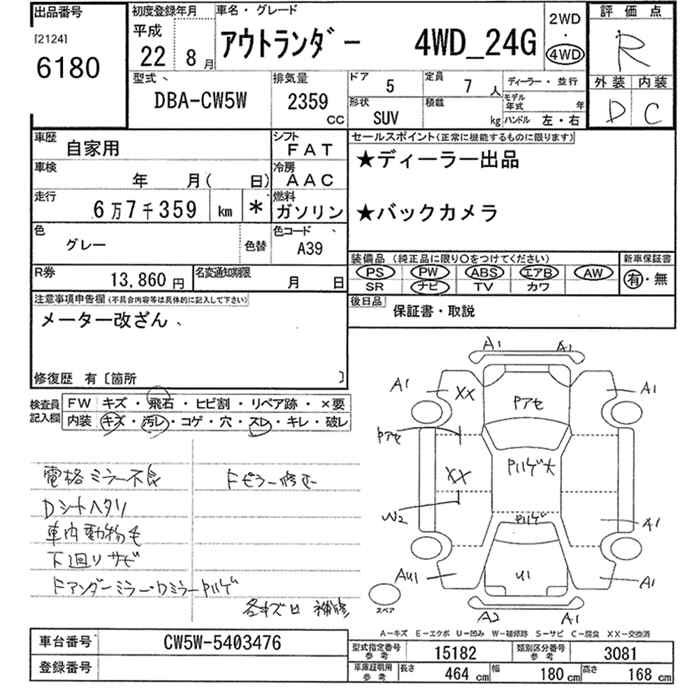 出品番号
[2124]
6180
初度登録年月
平成
22年 8月
車名・グレード
アウトランダー 4WD_24G
2WD
・
4WD
評価点
R
外装 内装
D C
型式
DBA-CW5W
排気量
2359
CC
ドア 5
定員 7 人
形状 SUV
積載 kg
ディーラー・並行
モデル年式 年
ハンドル 左・右
車歴 自家用
シフト FAT
車検 年 月( 日)
冷房 AAC
走行 6万7千359 km *
燃料 ガソリン
色 グレー
色替
色コード A39
R券 13,860円
名変通知期限 月 日
セールスポイント(正常に機能するものに限ります)
★ディーラー出品
★バックカメラ
装備品 (純正品に限り○をつけてください)
PS PW ABS エアB AW
SR ナビ TV カワ
新車保証書
有・無
後日品 保証書・取説
注意事項申告欄(不具合内容等は具体的に記入して下さい)
メーター改ざん、
修復歴 有〔箇所 〕
検査員記入欄
FW キズ・飛石・ヒビ割・リペア跡・×要
内装 キズ・汚レ・コゲ・穴・スレ・キレ・破レ
電格ミラー不良
Dシートヘタリ
車内動物毛
下廻りサビ
FアンダーミラーDミラーPハゲ
Fピラー修正
各キズ 補修
A1 A1
A1 XX Pアセ A1
Pアセ
XX Pハゲ大
W2 Pハゲ A1
AU1 U1 A1
A2 A1
スペア
A-キズ E-エクボ U-凹み W-補修跡 S-サビ C-腐食 XX-交換済
車台番号 CW5W-5403476
登録番号
型式指定番号 参考 15182
類別区分番号 参考 3081
車庫証明用 参考 長さ 464 cm 幅 180 cm 高さ 168 cm